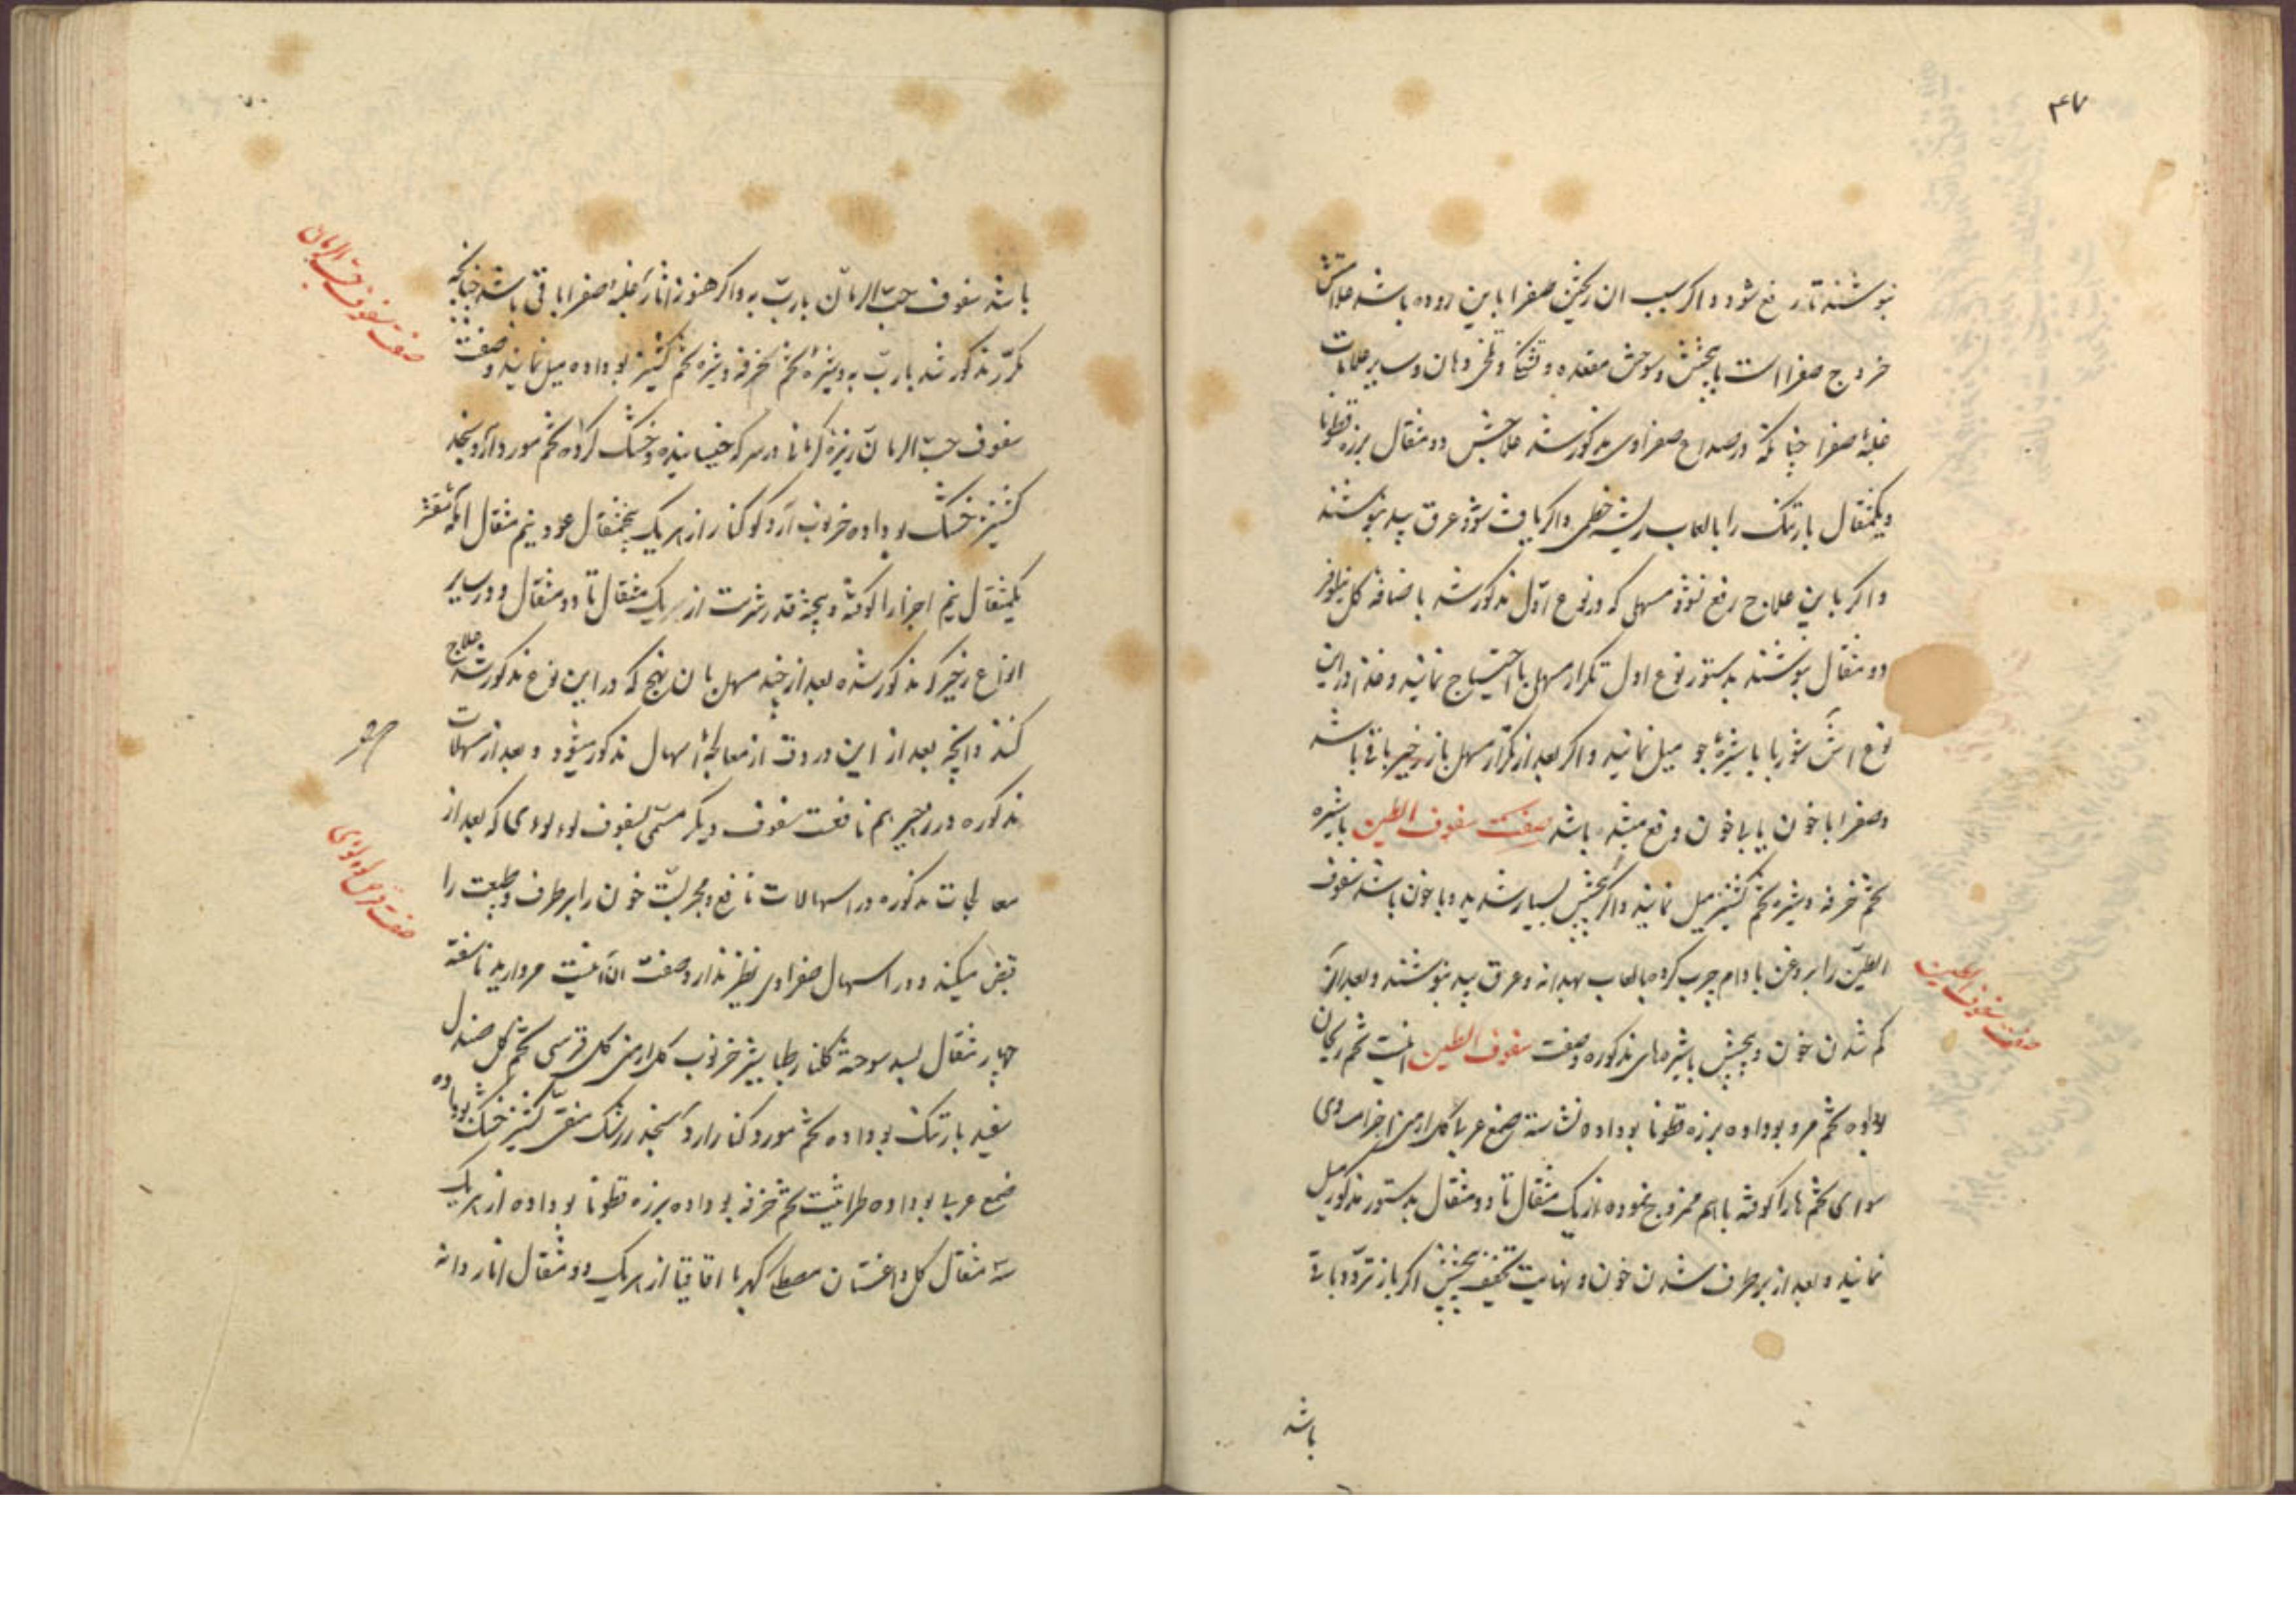 ۴۷
بنوشند تا رفع شود و اکر سبب ان ریختن صفرا باین روده باشد علامتش
خروج صفرا است با پیچش و سوزش مقعده و تشنکی و تلخی دهان و سایر علامات
غلبهٔ صفرا چنانکه در صداع صفراوی مذکور شد علاجش دو مثقال برزه قطونا
و یکمثقال بارتنک را با لعاب ریشه خطمی و اکر یافت شود عرق بید بنوشند
و اکر باین علاج رفع نشود مسهلی که در نوع اول مذکور شد با ضافه کل نیلوفر
دو مثقال بنوشند بدستور نوع اول تکرار مسهل با احتیاج نمایند و غذا در این
نوع اش شوربا با شیرهٔ جو میل نمایند و اکر بعد از تکرار مسهل باز زحیر باقی باشد
و صفرا با خون یا بی خون دفع میشده باشد صفت سفوف الطین با شیره
تخم خرفه و شیره تخم کشنیز میل نمایند و اکر پیچش بسیار شدید و با خون باشد سفوف
الطین را بروغن بادام چرب کرده با لعاب بهدانه و عرق بید بنوشند و بعد از
کم شدن خون و پیچش با شیره های مذکوره و صفت سفوف الطین اینست تخم ریحان
بوداده تخم مرو بوداده برزه قطونا بوداده نشاسته صمغ عربی کل ارمنی اجزا مساوی
سوای تخم ها را کوفته با هم ممزوج نموده از یک مثقال تا دو مثقال بدستور مذکور میل
نمایند و بعد از برطرف شدن خون و نهایت تخفیف پیچش اکر باز تردد باقی
صفت سفوف الطین
باشد
باشد سفوف حب الرمان با رب به و اکر هنوز اثار غلبهٔ صفرا باقی باشد چنانچه
مکرر مذکور شد با رب به و شیرهٔ تخم خرفه و شیره تخم کشنیز بوداده میل نمایند و صفت
سفوف حب الرمان زیرهٔ کرمانی در سرکه خیسانیده و خشک کرده تخم مورد آرد سنجد
کشنیز خشک بوداده خرنوب آرد کنار از هر یک پنجمثقال عود نیم مثقال
یکمثقال نیم اجزا را کوفته و بیخته قدر شربت از یک مثقال تا دو مثقال و در سایر
انواع زحیر که مذکور شده بعد از چند مسهل بان نهج که در این نوع مذکور شد علاج
کنند و انچه بعد از این در وقت از معالجهٔ اسهال مذکور میشود و بعد از مسهلات
مذکوره در زحیر هم نافعست سفوف دیکر مسمی بسفوف لولوی که بعد از
معالجات مذکوره در اسهالات نافع و مجربست خون را برطرف و طبیعت را
قبض میکند و در اسهال صفراوی نظیر ندارد و صفت ان اینست مروارید ناسفته
چهار مثقال بسد سوخته کلنار طباشیر خرنوب کل ارمنی کل قبرسی تخم کل صندل
سفید بارتنک بوداده تخم مورد کنار آرد سنجد زرشک منقی کشنیز خشک بوداده
صمغ عربی بوداده طراثیث تخم خرفه بوداده برزه قطونا بوداده از هر یک
سه مثقال کل داغستان مصطکی کهربا اقاقیا از هر یک دو مثقال انار دانه
صفت سفوف حب الرمان